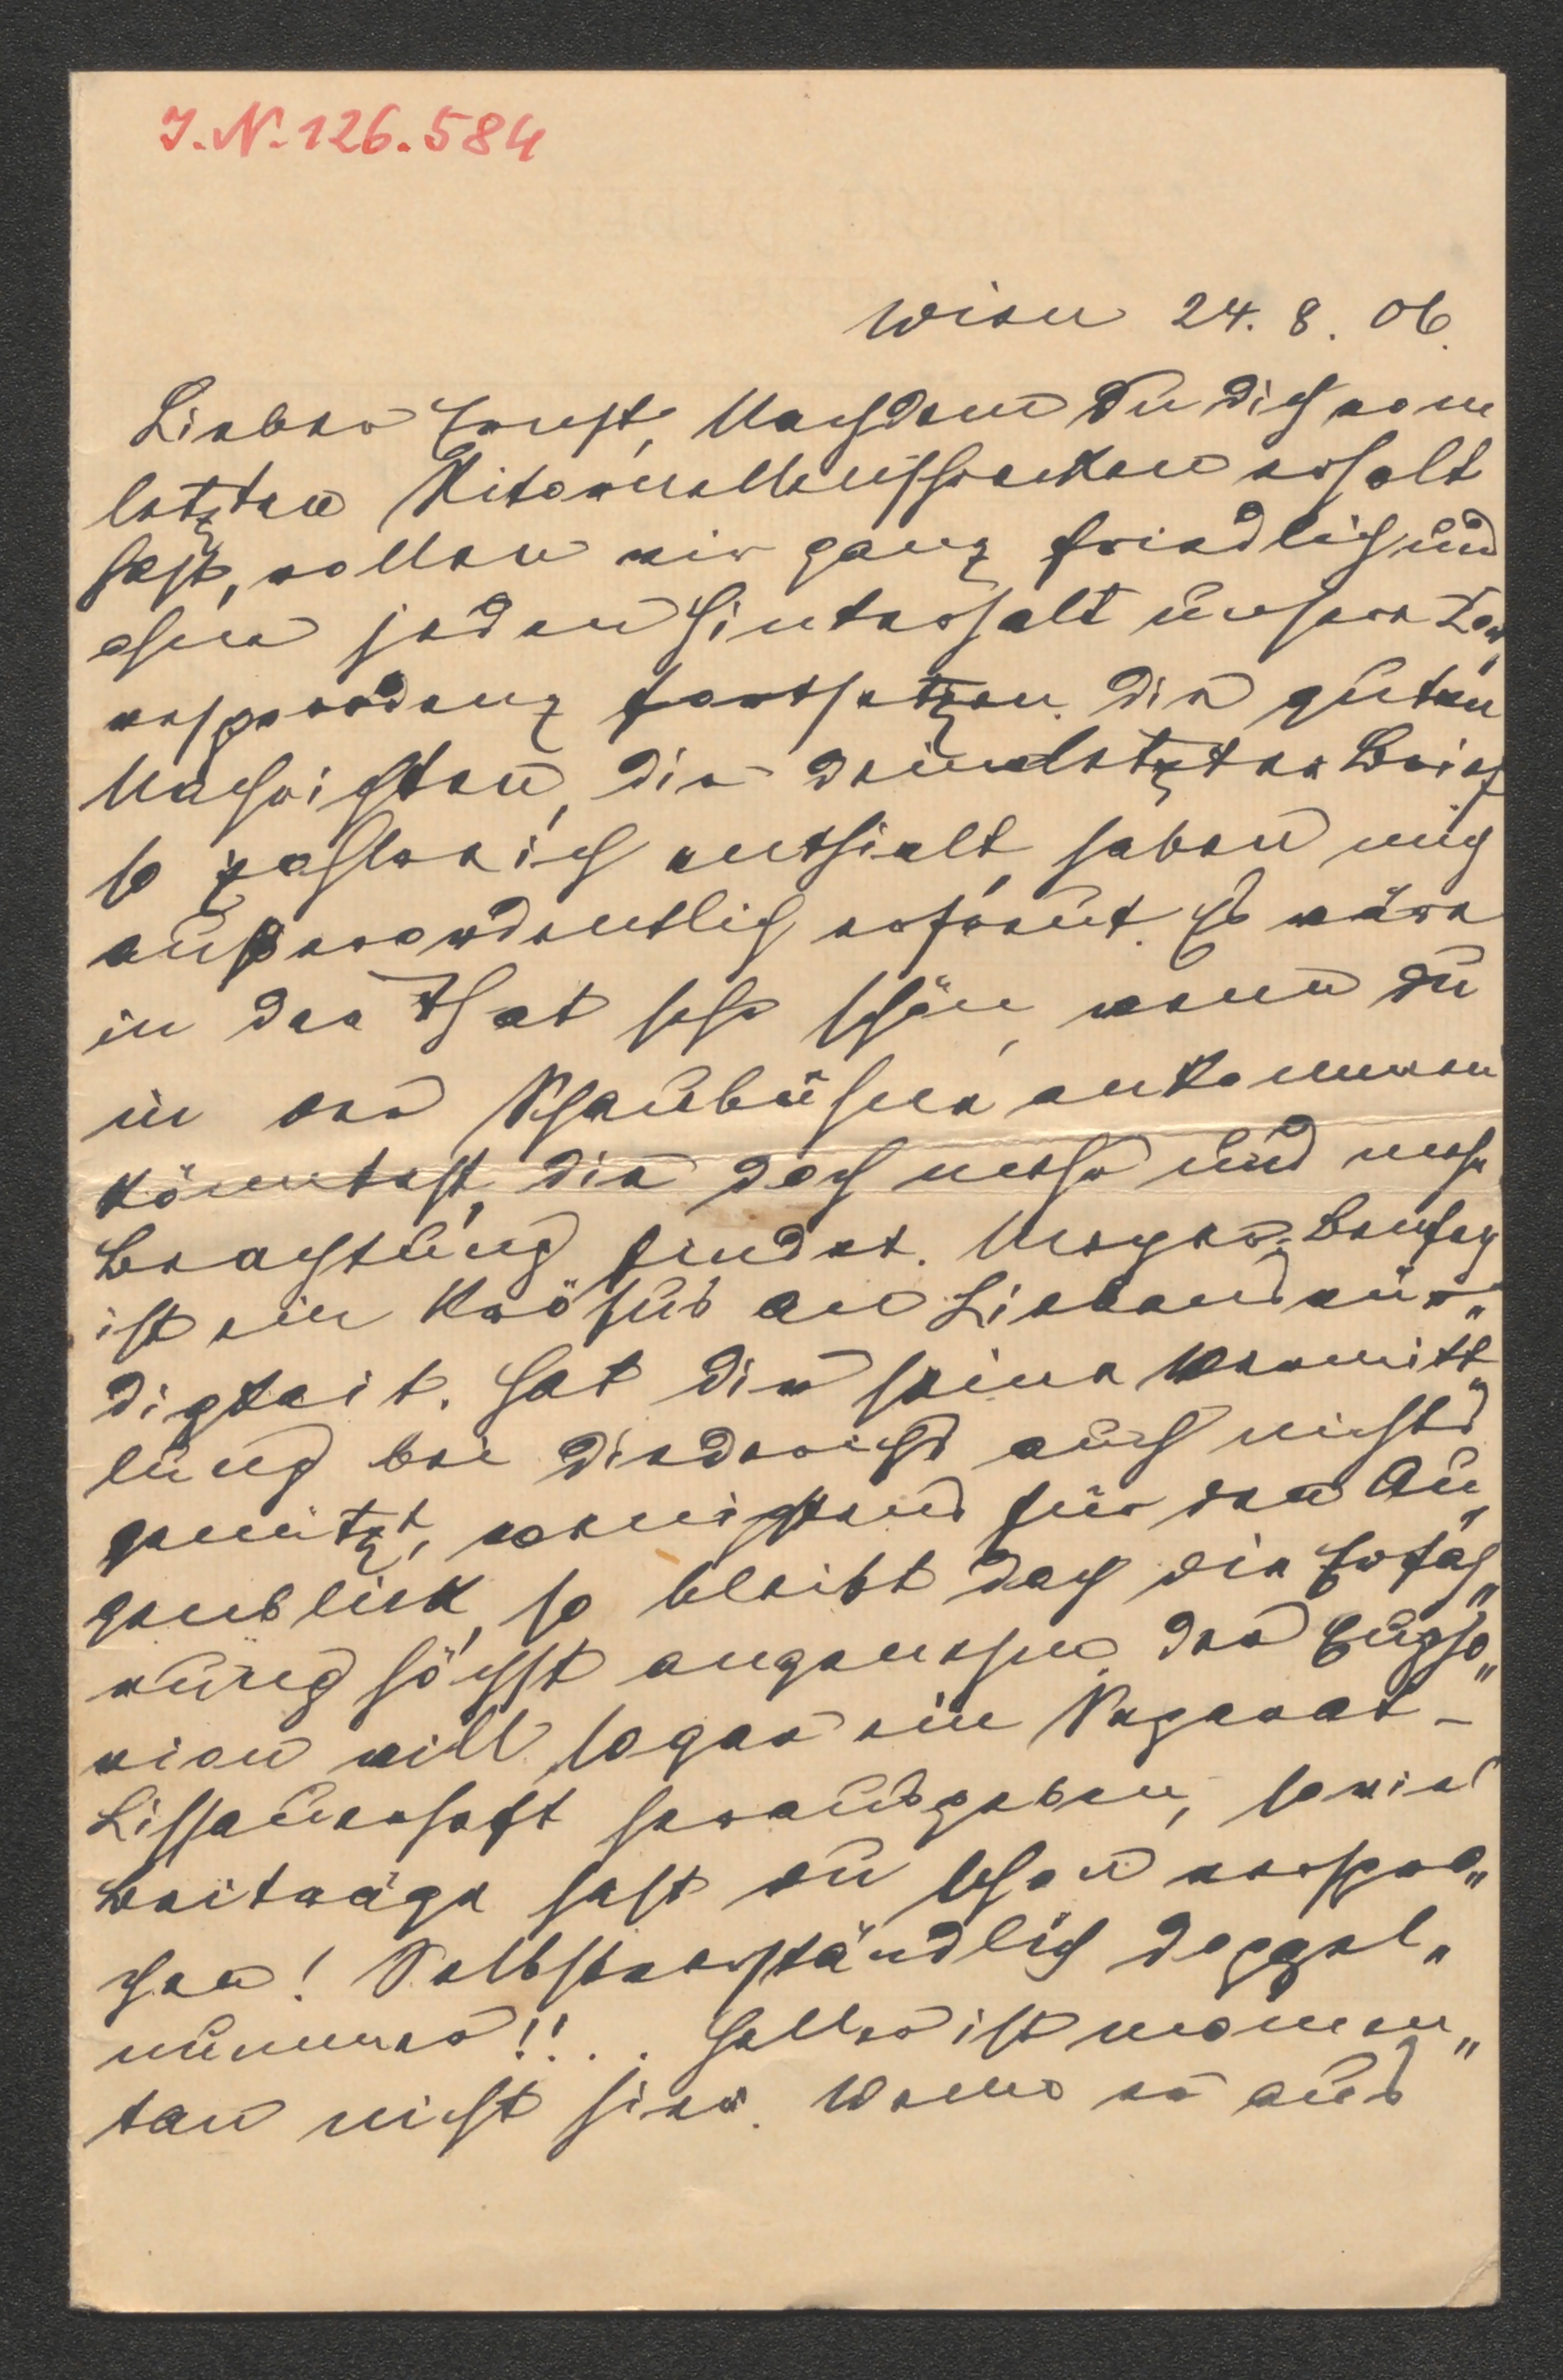 J.N. 126.584
Wien 24. 8. 06.
Lieber Ernst, Nachdem Du dich vom
letzten Ritornellenschrecken erholt
hast, wollen wir ganz friedlich und
ohne jeden Hinterhalt unsere Kor„
respondenz fortsetzen. Die guten
Nachrichten, die dein letzter Brief
so zahlreich enthielt, haben mich
außerordentlich erfreut. Es wäre
in der That sehr schön, wenn du
in der Schaubühne ankommen
könntest, die doch mehr und mehr
Beachtung findet. Meyer-Benfey
ist ein Krösus an Liebenswür„
digkeit. Hat dir seine Vermitt„
lung bei Diederichs auch nichts
genützt, wenigstens für den Au„
genblick, so bleibt doch die Erfah„
rung höchst angenehm. Das
will sogar ein Separat-
Lissauerheft herausgeben, sowie
Beiträge hast du schon verspro„
chen! Selbstverständlich Doppel„
nummer!! . . Heller ist momen„
tan nicht hier. Wenn er aus